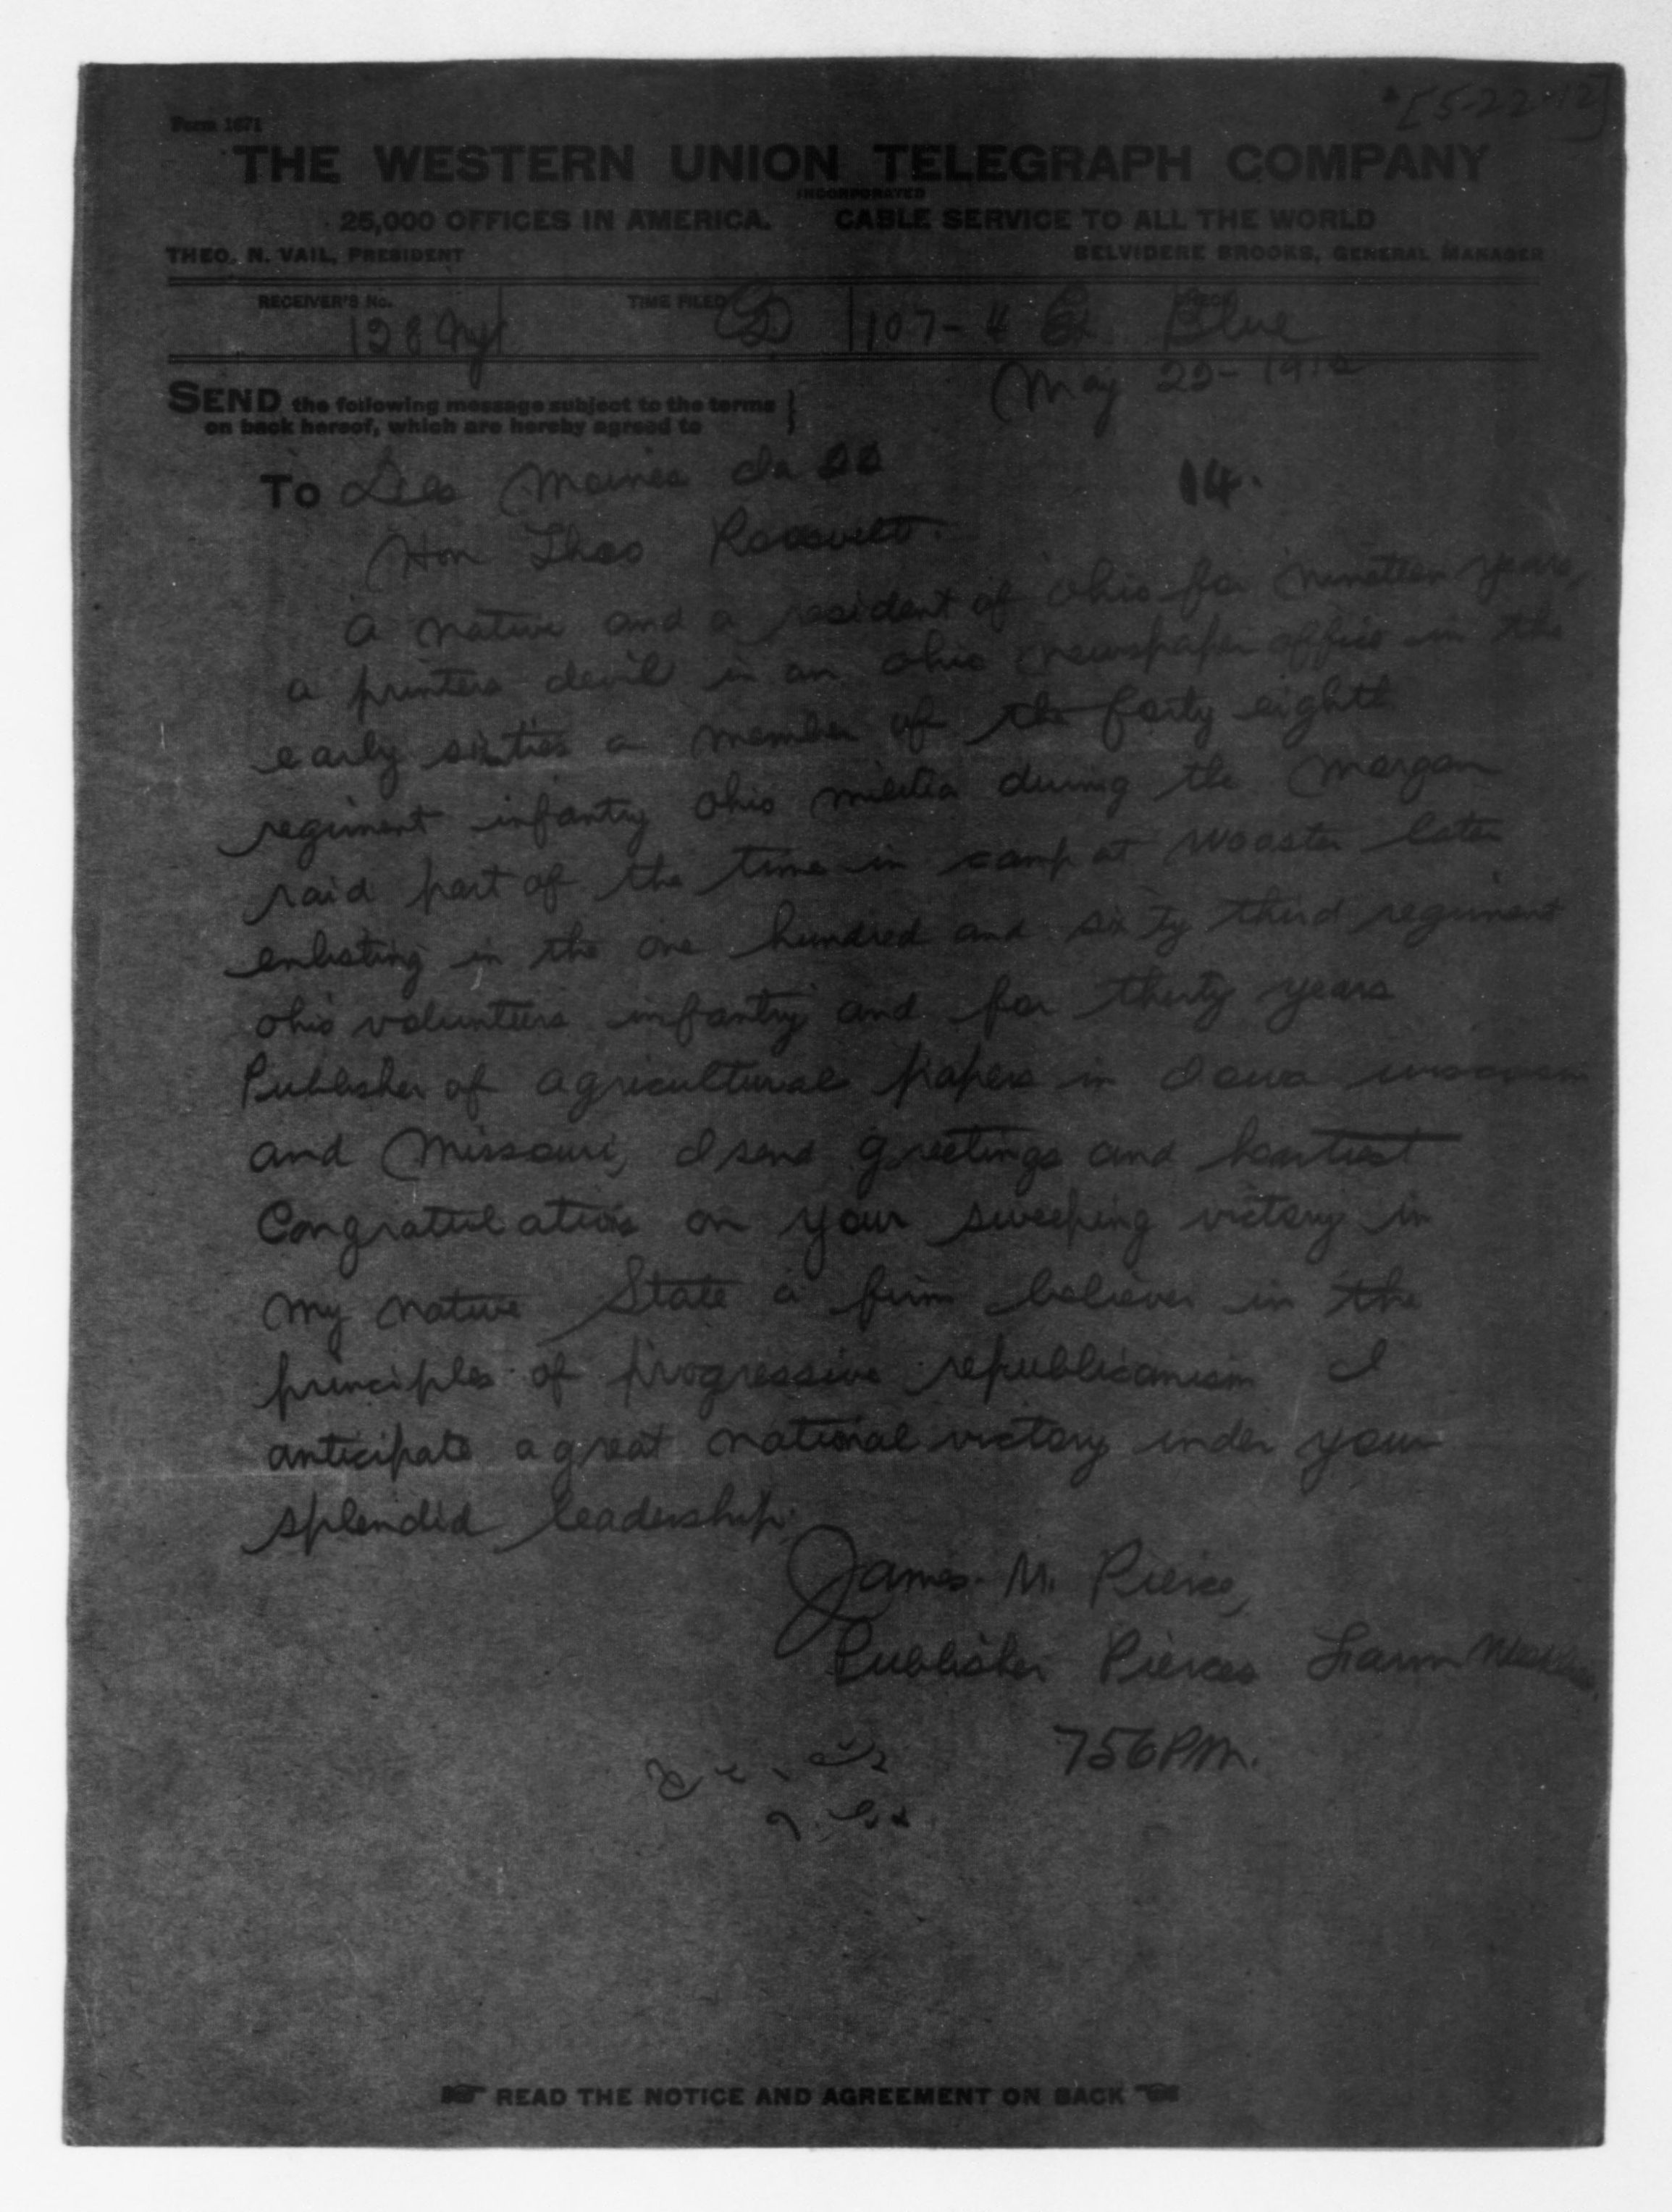 [5-22-12]
Form 1671
THE WESTERN UNION TELEGRAPH COMPANY
INCORPORATED
25,000 OFFICES IN AMERICA. CABLE SERVICE TO ALL THE WORLD
THEO. N. VAIL, PRESIDENT BELVIDERE BROOKS, GENERAL MANAGER
RECEIVER'S No. TIME FILED CHECK
128 107- Blue
May 22-1912
SEND the following message subject to the terms
on back hereof, which are hereby agreed to
To Des Moines Ia 22 14.
Hon Theo Roosevelt.
a native and a resident of Ohio for nineteen years,
a printers devil in an ohio newspaper office in the
early sixties a member of the forty eighth
regiment infantry Ohio militia during the Morgan
raid part of the time in camp at Wooster later
enlisting in the one hundred and sixty third regiment
ohio volunteers infantry and for thirty years
Publisher of agricultural papers in Iowa wisconsin
and Missouri, I send greetings and heartiest
Congratulations on your sweeping victory in
my native State a firm believer in the
principles of progressive republicanism I
anticipate a great national victory under your
splendid leadership.
James. M. Pierce,
Publisher Pierces Farm Weeklies.
756PM.
READ THE NOTICE AND AGREEMENT ON BACK